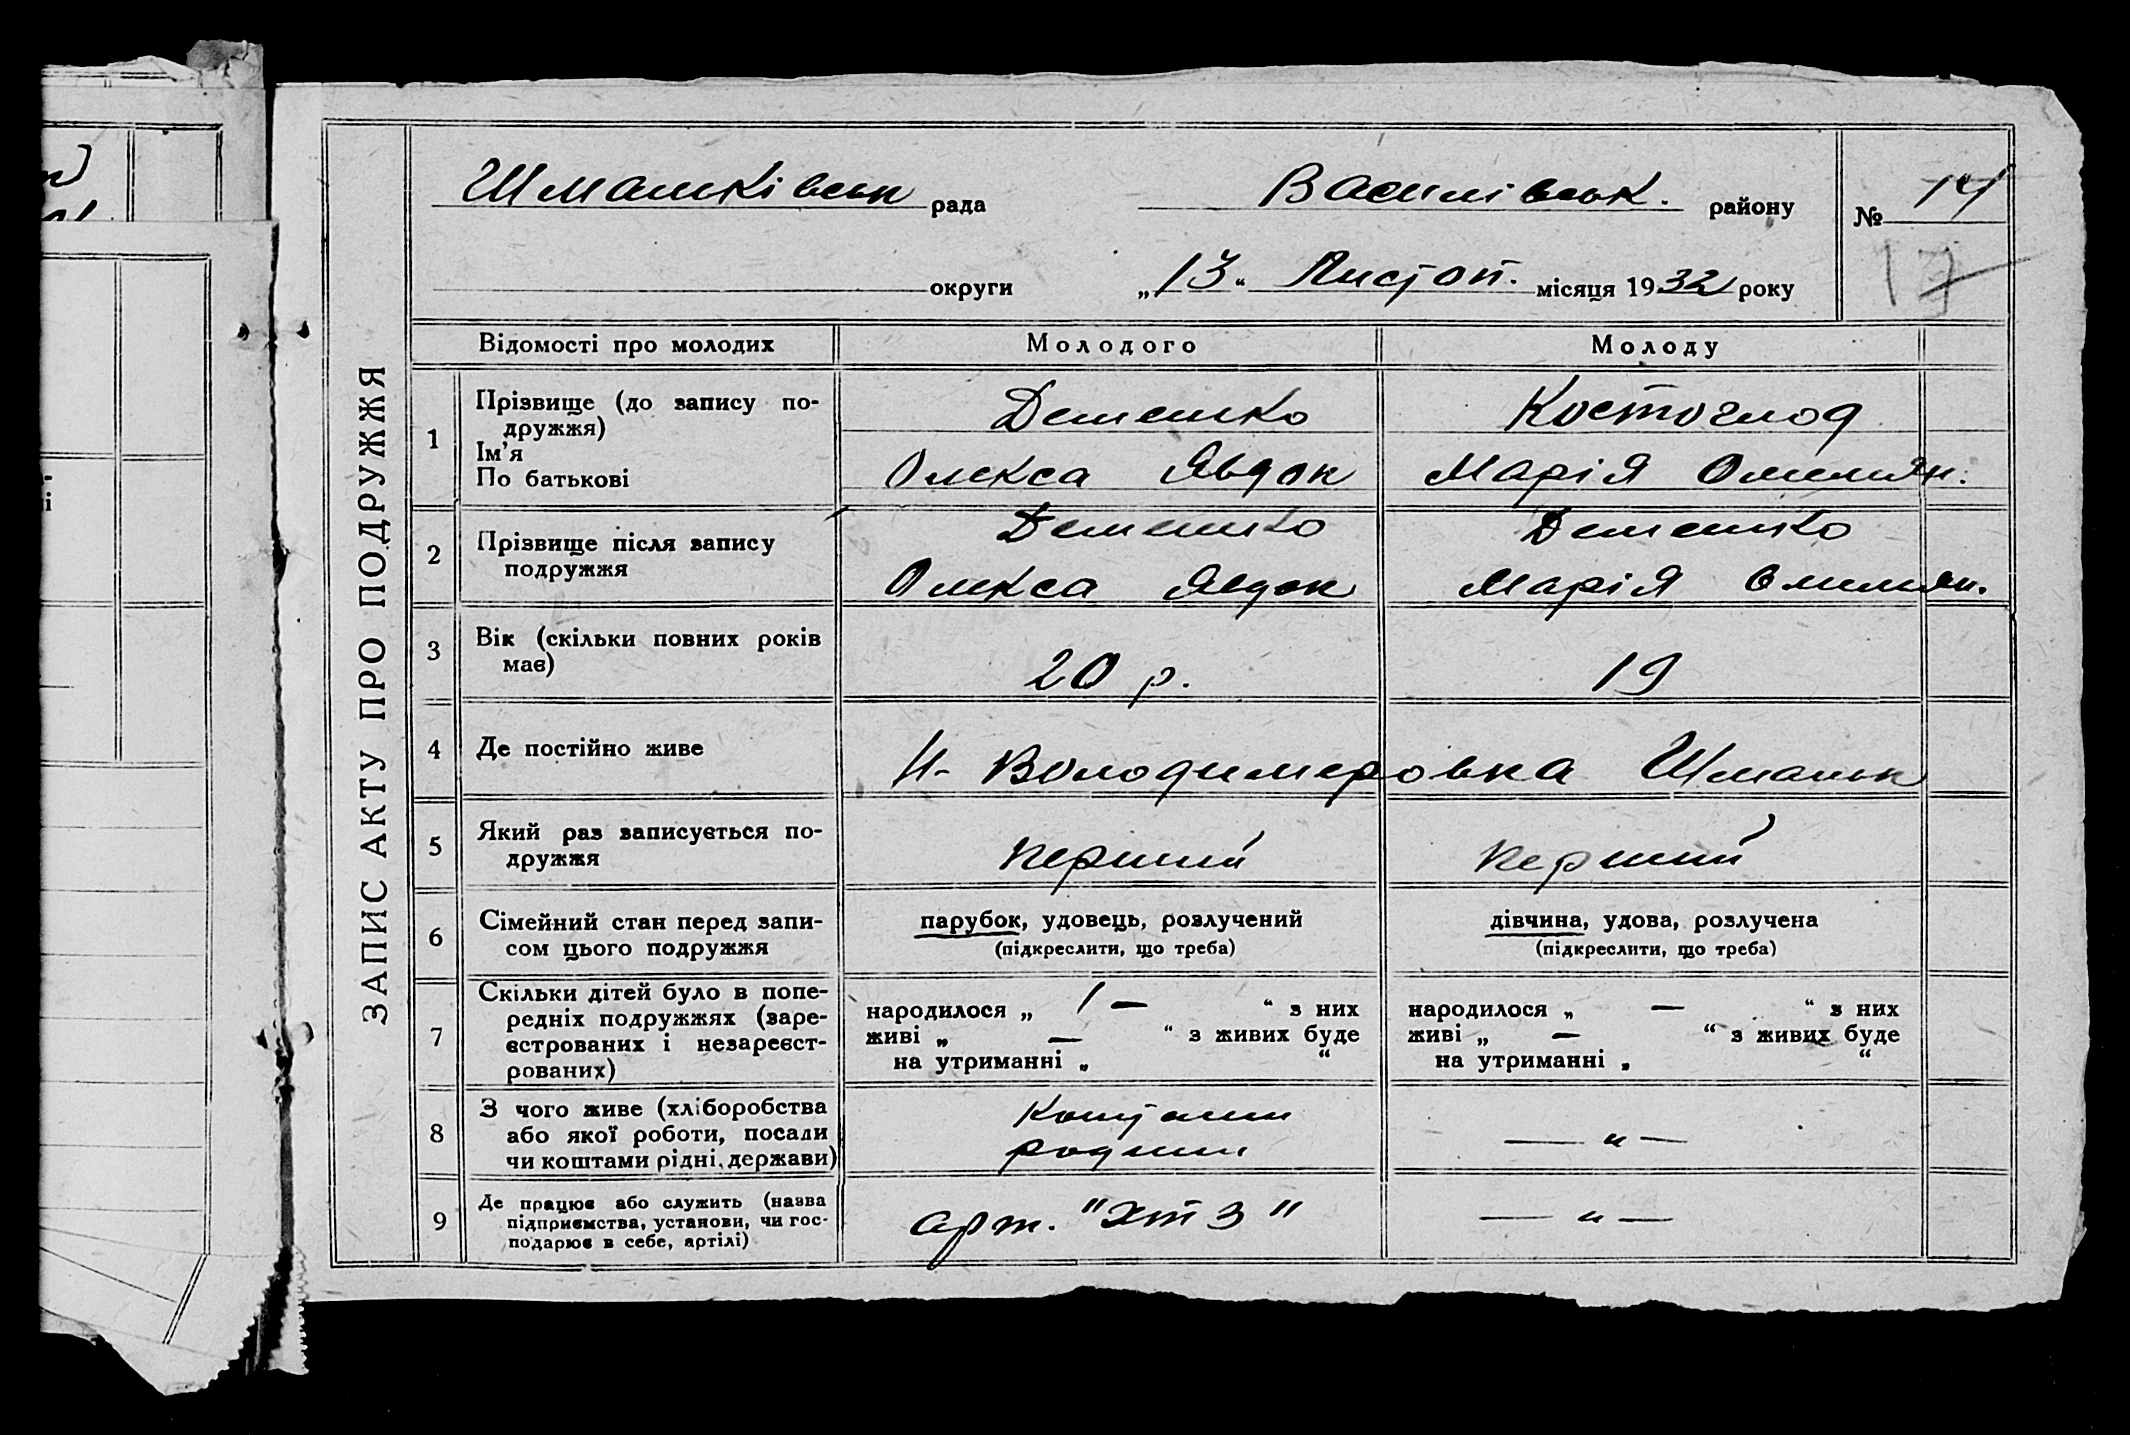 ЗАПИС АКТУ ПРО ПОДРУЖЖЯ
Шмальківськ рада Василівськ. району № 14
округи „13“ Листоп. місяця 1932 року 17
Відомості про молодих Молодого Молоду
1 Прізвище (до запису по-
дружжя)
Ім’я
По батькові
Деменко Костоглод
Олекса Явдок Марія Омелян.
2 Прізвище після запису
подружжя
Деменко Деменко
Олекса Явдок Марія Омелян.
3 Вік (скільки повних років
має)
20 р. 19
4 Де постійно живе Н-Володимеровка Шмальк
5 Який раз записується по-
дружжя
перший перший
6 Сімейний стан перед запи-
сом цього подружжя
парубок, удовець, розлучений
(підкреслити, що треба)
дівчина, удова, розлучена
(підкреслити, що треба)
7 Скільки дітей було в попе-
редніх подружжях (заре-
єстрованих і незареєст-
рованих)
народилося „ — “ з них
живі „ — “ з живих буде
на утриманні „ “
народилося „ — “ з них
живі „ — “ з живих буде
на утриманні „ “
8 З чого живе (хліборобства
або якої роботи, посади
чи коштами рідні, держави)
Коштами
родини
— „ —
9 Де працює або служить (назва
підприємства, установи, чи гос-
подарює в себе, артілі)
арт. "ХТЗ"
— „ —